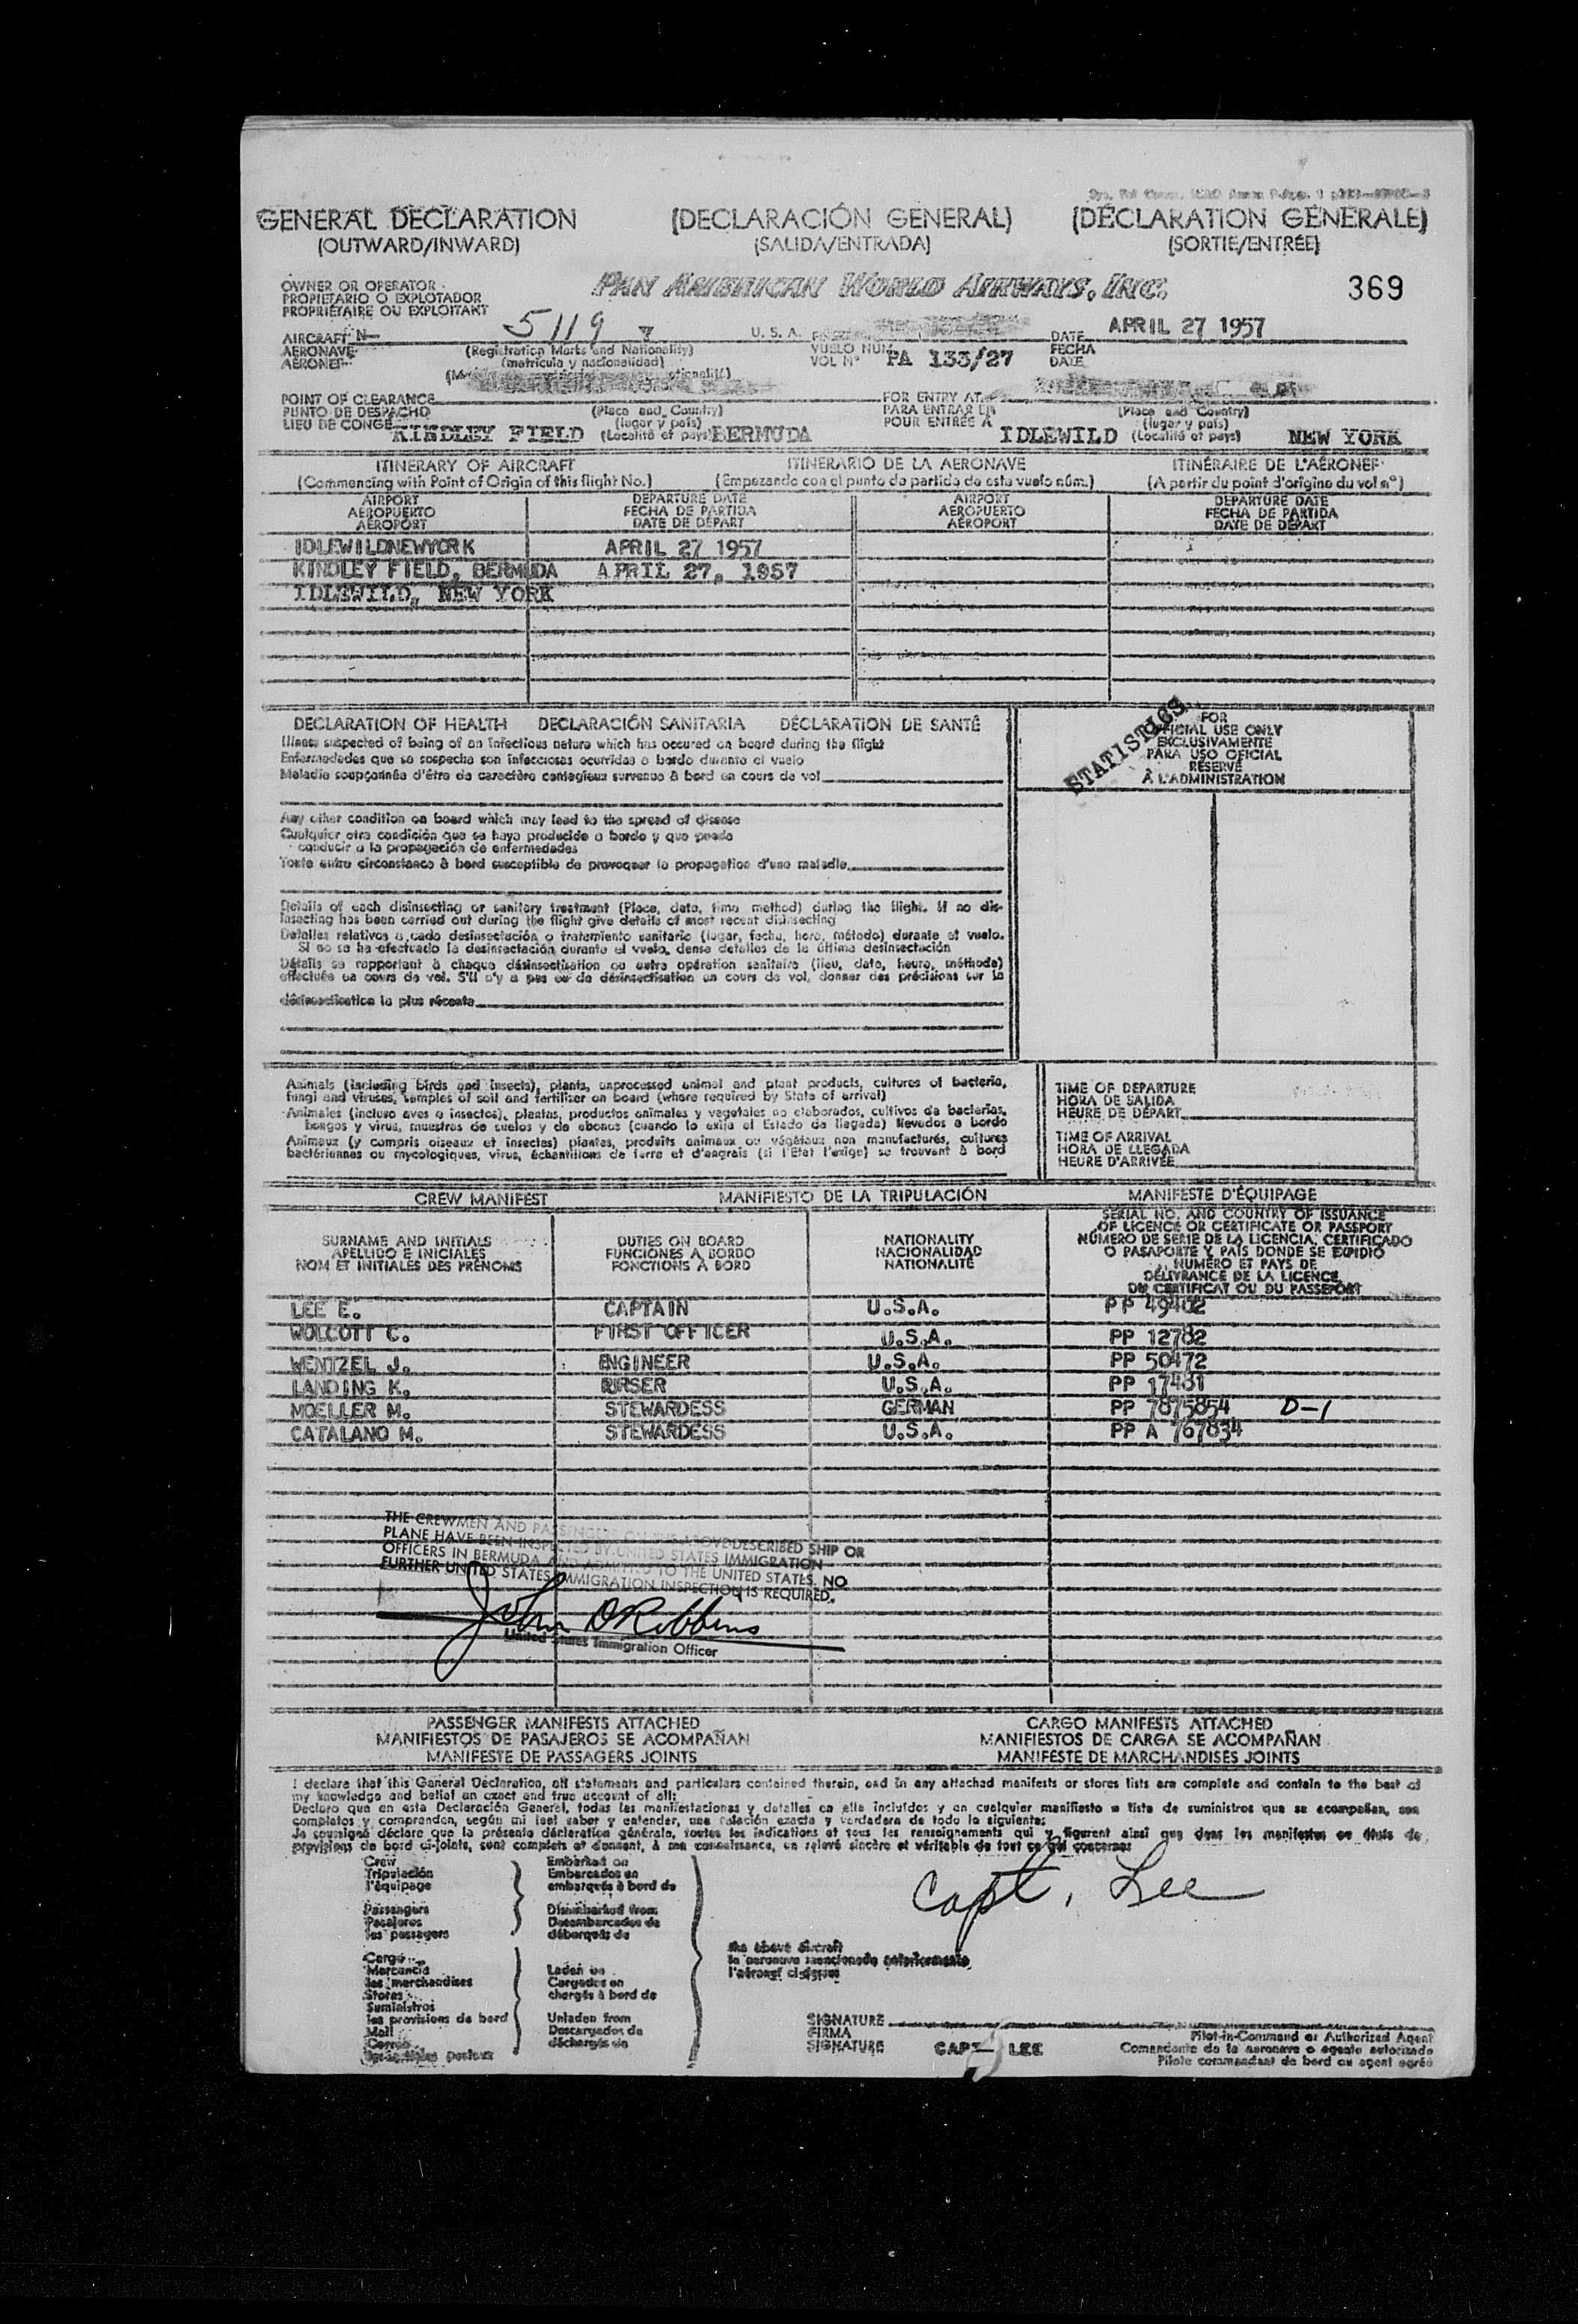 GENERAL DECLARATION (DECLARACIÓN GENERAL) (DÉCLARATION GÉNÉRALE)
(OUTWARD/INWARD) (SALIDA/ENTRADA) (SORTIE/ENTRÉE)
OWNER OR OPERATOR
PROPIETARIO O EXPLOTADOR
PROPRIÉTAIRE OU EXPLOITANT
PAN AMERICAN WORLD AIRWAYS, INC. 369
AIRCRAFT N- 5119 U. S. A. DATE APRIL 27 1957
AERONAVE (Registration Marks and Nationality) VUELO NUM. FECHA
AÉRONEF (matrícula y nacionalidad) VOL Nº PA 133/27 DATE
POINT OF CLEARANCE (Place and Country) FOR ENTRY AT (Place and Country)
PUNTO DE DESPACHO (lugar y país) PARA ENTRAR EN (lugar y país)
LIEU DE CONGÉ KINDLEY FIELD (Localité et pays) BERMUDA POUR ENTRÉE À IDLEWILD (Localité et pays) NEW YORK
ITINERARY OF AIRCRAFT ITINERARIO DE LA AERONAVE ITINÉRAIRE DE L'AÉRONEF
(Commencing with Point of Origin of this flight No.) (Empezando con el punto de partida de este vuelo núm.) (A partir du point d'origine du vol nº)
AIRPORT DEPARTURE DATE AIRPORT DEPARTURE DATE
AEROPUERTO FECHA DE PARTIDA AEROPUERTO FECHA DE PARTIDA
AÉROPORT DATE DE DÉPART AÉROPORT DATE DE DÉPART
IDLEWILDNEWYORK APRIL 27 1957
KINDLEY FIELD, BERMUDA APRIL 27, 1957
IDLEWILD, NEW YORK
DECLARATION OF HEALTH DECLARACIÓN SANITARIA DÉCLARATION DE SANTÉ
Illness suspected of being of an infectious nature which has occured on board during the flight
Enfermedades que se sospecha son infecciosas ocurridas a bordo durante el vuelo
Maladie soupçonnée d'être de caractère contagieux survenue à bord en cours de vol
STATISTICS
FOR
OFFICIAL USE ONLY
EXCLUSIVAMENTE
PARA USO OFICIAL
RÉSERVÉ
À L'ADMINISTRATION
Any other condition on board which may lead to the spread of disease
Cualquier otra condición que se haya producido a bordo y que pueda
conducir a la propagación de enfermedades
Toute autre circonstance à bord susceptible de provoquer la propagation d'une maladie
Details of each disinsecting or sanitary treatment (Place, date, time method) during the flight. If no dis-
insecting has been carried out during the flight give details of most recent disinsecting
Detalles relativos a cada desinsectación o tratamiento sanitario (lugar, fecha, hora, método) durante el vuelo.
Si no se ha efectuado la desinsectación durante el vuelo, dense detalles de la última desinsectación
Détails se rapportant à chaque désinsectisation ou autre opération sanitaire (lieu, date, heure, méthode)
effectuée en cours de vol. S'il n'y a pas eu de désinsectisation en cours de vol, donner des précisions sur la
désinsectisation la plus récente
Animals (including birds and insects), plants, unprocessed animal and plant products, cultures of bacteria,
fungi and viruses, samples of soil and fertilizer on board (where required by State of arrival)
Animales (incluso aves o insectos), plantas, productos animales y vegetales no elaborados, cultivos de bacterias,
hongos y virus, muestras de suelos y de abonos (cuando lo exija el Estado de llegada) llevados a bordo
Animaux (y compris oiseaux et insectes) plantes, produits animaux ou végétaux non manufacturés, cultures
bactériennes ou mycologiques, virus, échantillons de terre et d'engrais (si l'État l'exige) se trouvant à bord
TIME OF DEPARTURE
HORA DE SALIDA
HEURE DE DÉPART
TIME OF ARRIVAL
HORA DE LLEGADA
HEURE D'ARRIVÉE
CREW MANIFEST MANIFIESTO DE LA TRIPULACIÓN MANIFESTE D'ÉQUIPAGE
SURNAME AND INITIALS
APELLIDO E INICIALES
NOM ET INITIALES DES PRÉNOMS
DUTIES ON BOARD
FUNCIONES A BORDO
FONCTIONS À BORD
NATIONALITY
NACIONALIDAD
NATIONALITÉ
SERIAL NO. AND COUNTRY OF ISSUANCE
OF LICENCE OR CERTIFICATE OR PASSPORT
NÚMERO DE SERIE DE LA LICENCIA, CERTIFICADO
O PASAPORTE Y PAÍS DONDE SE EXPIDIÓ
NUMÉRO ET PAYS DE
DÉLIVRANCE DE LA LICENCE
DU CERTIFICAT OU DU PASSEPORT
LEE E. CAPTAIN U.S.A. PP 49402
WOLCOTT C. FIRST OFFICER U.S.A. PP 12782
WENTZEL J. ENGINEER U.S.A. PP 50472
LANDING K. PURSER U.S.A. PP 17481
MOELLER M. STEWARDESS GERMAN PP 7875854 D-1
CATALANO M. STEWARDESS U.S.A. PP A 767834
THE CREWMEN AND PASSENGERS ON THE ABOVE DESCRIBED SHIP OR
PLANE HAVE BEEN INSPECTED BY UNITED STATES IMMIGRATION
OFFICERS IN BERMUDA AND ADMITTED TO THE UNITED STATES. NO
FURTHER UNITED STATES IMMIGRATION INSPECTION IS REQUIRED.
John D Robbins
United States Immigration Officer
PASSENGER MANIFESTS ATTACHED CARGO MANIFESTS ATTACHED
MANIFIESTOS DE PASAJEROS SE ACOMPAÑAN MANIFIESTOS DE CARGA SE ACOMPAÑAN
MANIFESTE DE PASSAGERS JOINTS MANIFESTE DE MARCHANDISES JOINTS
I declare that this General Declaration, all statements and particulars contained therein, and in any attached manifests or stores lists are complete and contain to the best of
my knowledge and belief an exact and true account of all:
Declaro que en esta Declaración General, todas las manifestaciones y detalles en ella incluídos y en cualquier manifiesto o lista de suministros que se acompañan, son
completos y comprenden, según mi leal saber y entender, una relación exacta y verdadera de todo lo siguiente:
Je soussigné déclare que la présente déclaration générale, toutes les indications et tous les renseignements qui y figurent ainsi que dans les manifestes ou états de
provisions de bord ci-joints, sont complets et donnent, à ma connaissance, un relevé sincère et véritable de tout ce qui concerne:
Crew Embarked on
Tripulación Embarcados en
l'équipage embarqués à bord de
Capt. Lee
Passengers Disembarked from
Pasajeros Desembarcados de
les passagers débarqués de
the above aircraft
la aeronave mencionada anteriormente
l'aéronef ci-dessus
Cargo
Mercancía Laden on
les marchandises Cargados en
Stores chargés à bord de
Suministros
les provisions de bord Unladen from
Mail Descargados de
Correo déchargés de
SIGNATURE
FIRMA
SIGNATURE CAPT LEE
Pilot-in-Command or Authorized Agent
Comandante de la aeronave o agente autorizado
Pilote commandant de bord ou agent agréé